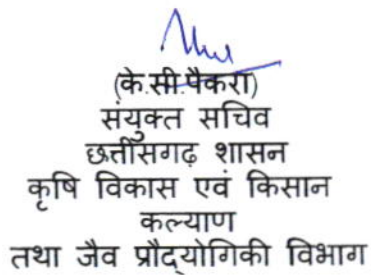 (के.सी.पैकरा)
संयुक्त सचिव
छत्तीसगढ़ शासन
कृषि विकास एवं किसान
कल्याण
तथा जैव प्रौद्योगिकी विभाग